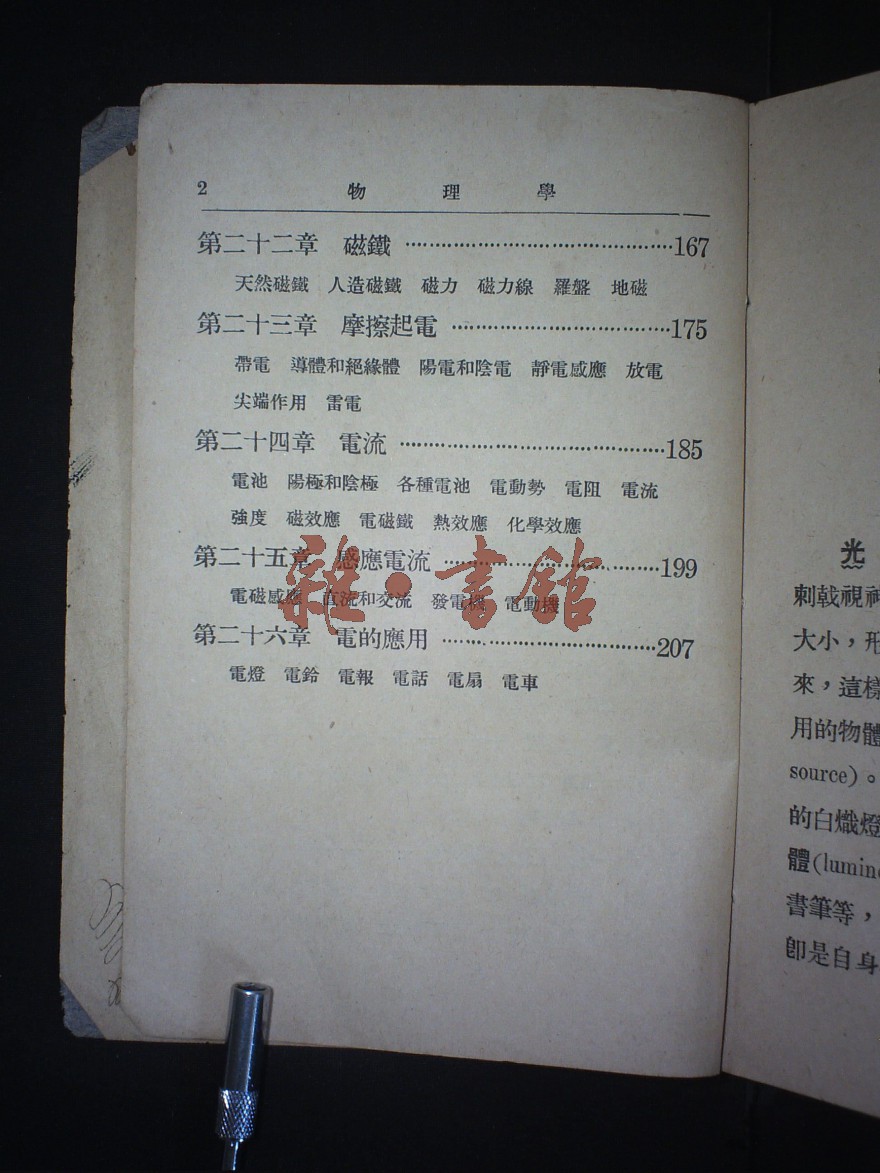 2 物理學
第二十二章 磁鐵 ……………………………………167
天然磁鐵 人造磁鐵 磁力 磁力線 羅盤 地磁
第二十三章 摩擦起電 ………………………………175
帶電 導體和絕緣體 陽電和陰電 靜電感應 放電
尖端作用 雷電
第二十四章 電流 ……………………………………185
電池 陽極和陰極 各種電池 電動勢 電阻 電流
強度 磁效應 電磁鐵 熱效應 化學效應
第二十五章 感應電流 ………………………………199
電磁感應 直流和交流 發電機 電動機
第二十六章 電的應用 ………………………………207
電燈 電鈴 電報 電話 電扇 電車
雜·書館
光
刺戟視神
大小，形
來，這樣
用的物體
source)。
的白熾燈
體(lumin
書筆等，
卽是自身